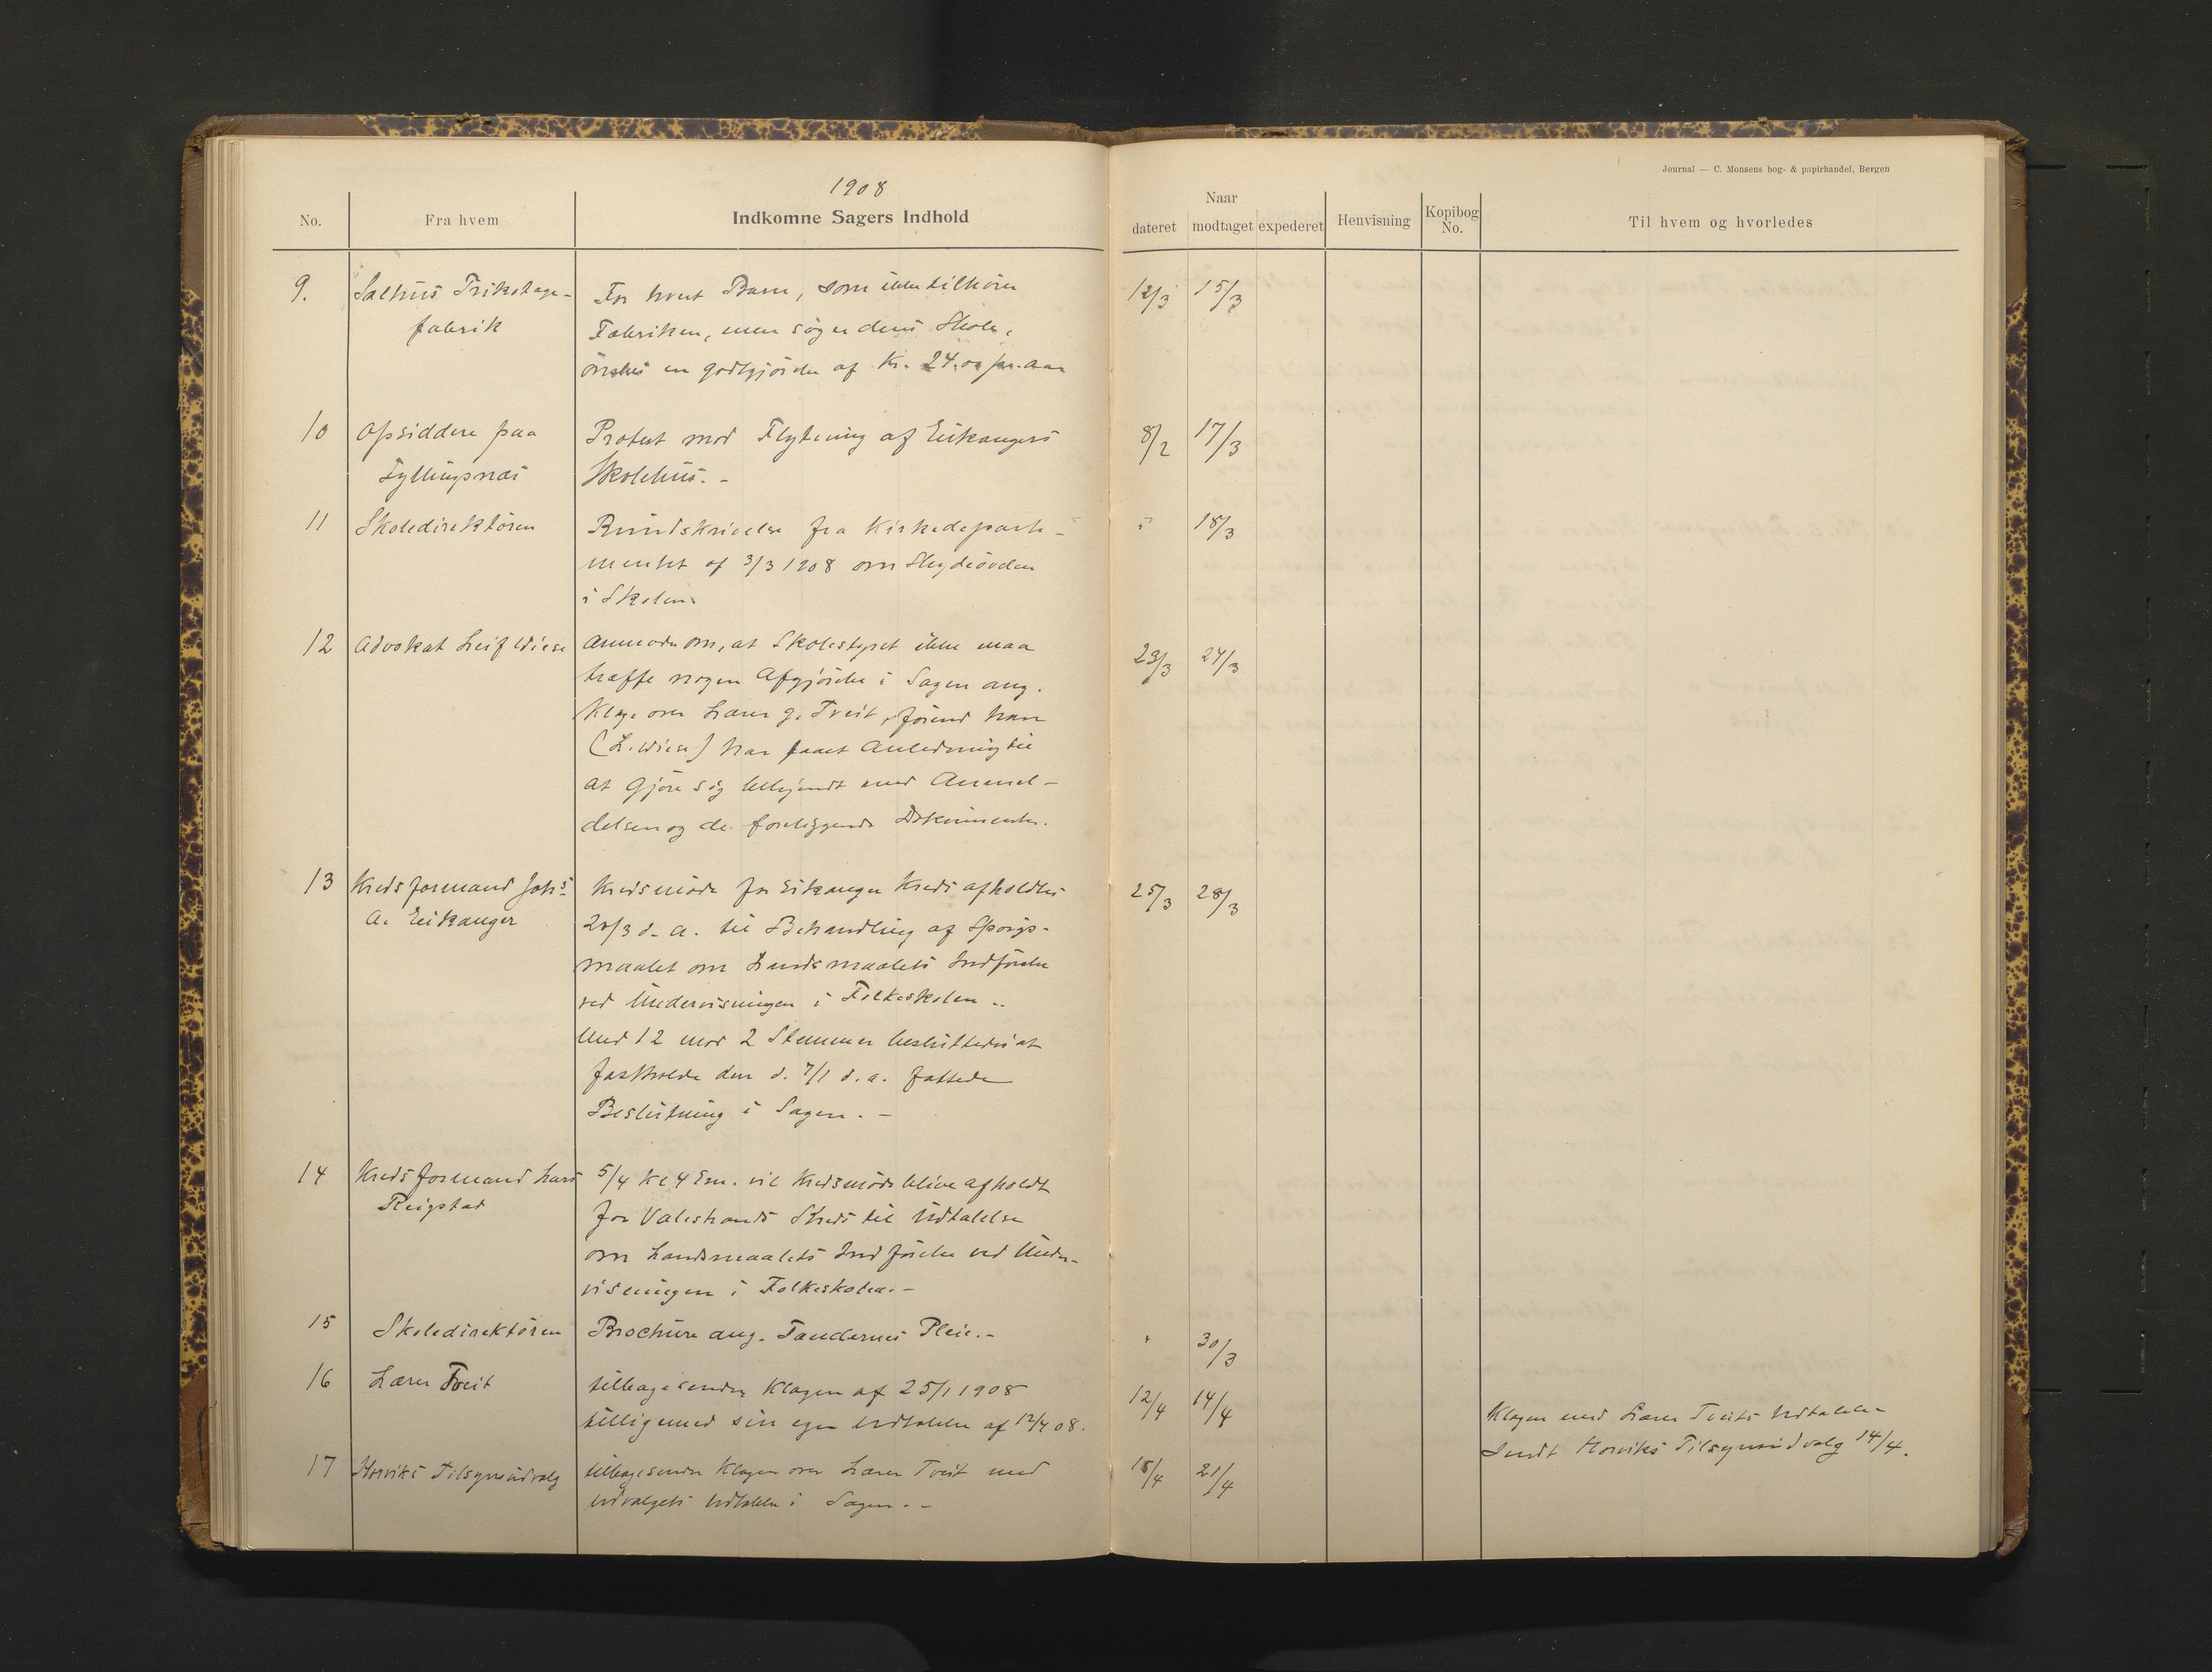 Journal — C. Monsens bog- & papirhandel, Bergen
1908
No. Fra hvem Indkomne Sagers Indhold
Naar
dateret modtaget expederet Henvisning Kopibog No. Til hvem og hvorledes
9. Salhus Trikotage- For hvert Barn, som ikke tilhører 12/3 15/3
fabrik Fabriken, men søger dens Skole,
ønskes en godtgjørelse af Kr. 24.00 pr. Aar
10 Opsiddere paa Protest mod Flytning af Eikangers 8/2 17/3
Fyllingsnæs Skolehus. -
11 Skoledirektøren Rundskrivelse fra Kirkedeparte- " 18/3
mentet af 3/3 1908 om
i Skolen.
12 Advokat Leif Wiese Anmoder om, at Skolestyret ikke maa 23/3 24/3
træffe nogen Afgjørelse i Sagen ang.
Klage over Lærer G. Tveit, førend han
(L. Wiese) har faaet Anledning til
at gjøre sig bekjendt med Anmel-
delsen og de foreliggende Dokumenter.
13 Kredsformand Johs Kredsmøde for Eikanger Kreds afholdtes 25/3 28/3
A. Eikanger 20/3 d. A. til Behandling af Spørgs-
maalet om Landsmaalets Indførelse
ved Undervisningen i Folkeskolen..
Med 12 mod 2 Stemmer besluttedes at
fastholde den d. 7/1 d. a. fattede
Beslutning i Sagen. -
14 Kredsformand Lars 5/4 Kl 4 Em. vil Kredsmøde blive afholdt
Reigstad for Valestrands Kreds til Udtalelse
om Landsmaalets Indførelse ved Under-
visningen i Folkeskolen. -
15 Skoledirektøren Brochure ang. Tændernes Pleie. - " 30/3
16 Lærer Tveit tilbagesender Klagen af 25/1 1908 12/4 14/4
Klagen med Lærer Tveits Udtalelse
tilligemed sin egen Udtalelse af 12/4 08.
Sendt Horviks Tilsynsudvalg 14/4.
17 Horviks Tilsynsudvalg tilbagesender Klagen over Lærer Tveit med 18/4 21/4
Udvalgets Udtalelse i Sagen. -